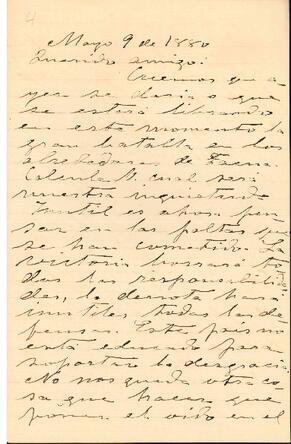 4
Mayo 9 de 1880
Querido amigo:
Creemos que a
yer se daria o que
se estará librando
en este momento la
gran batalla en los
alrededores de Tacna.
Calcule U. cual será
nuestra inquietud.
Inutil es ahora pen
sar en las faltas que
se han cometido. La
victoria borrará to
das las responsabilida
des, la derrota hará
inutiles todas las de
fensas. Este pais no
está educado para
soportar la desgracia.
No nos queda otra co
sa que hacer que
poner el oido en el